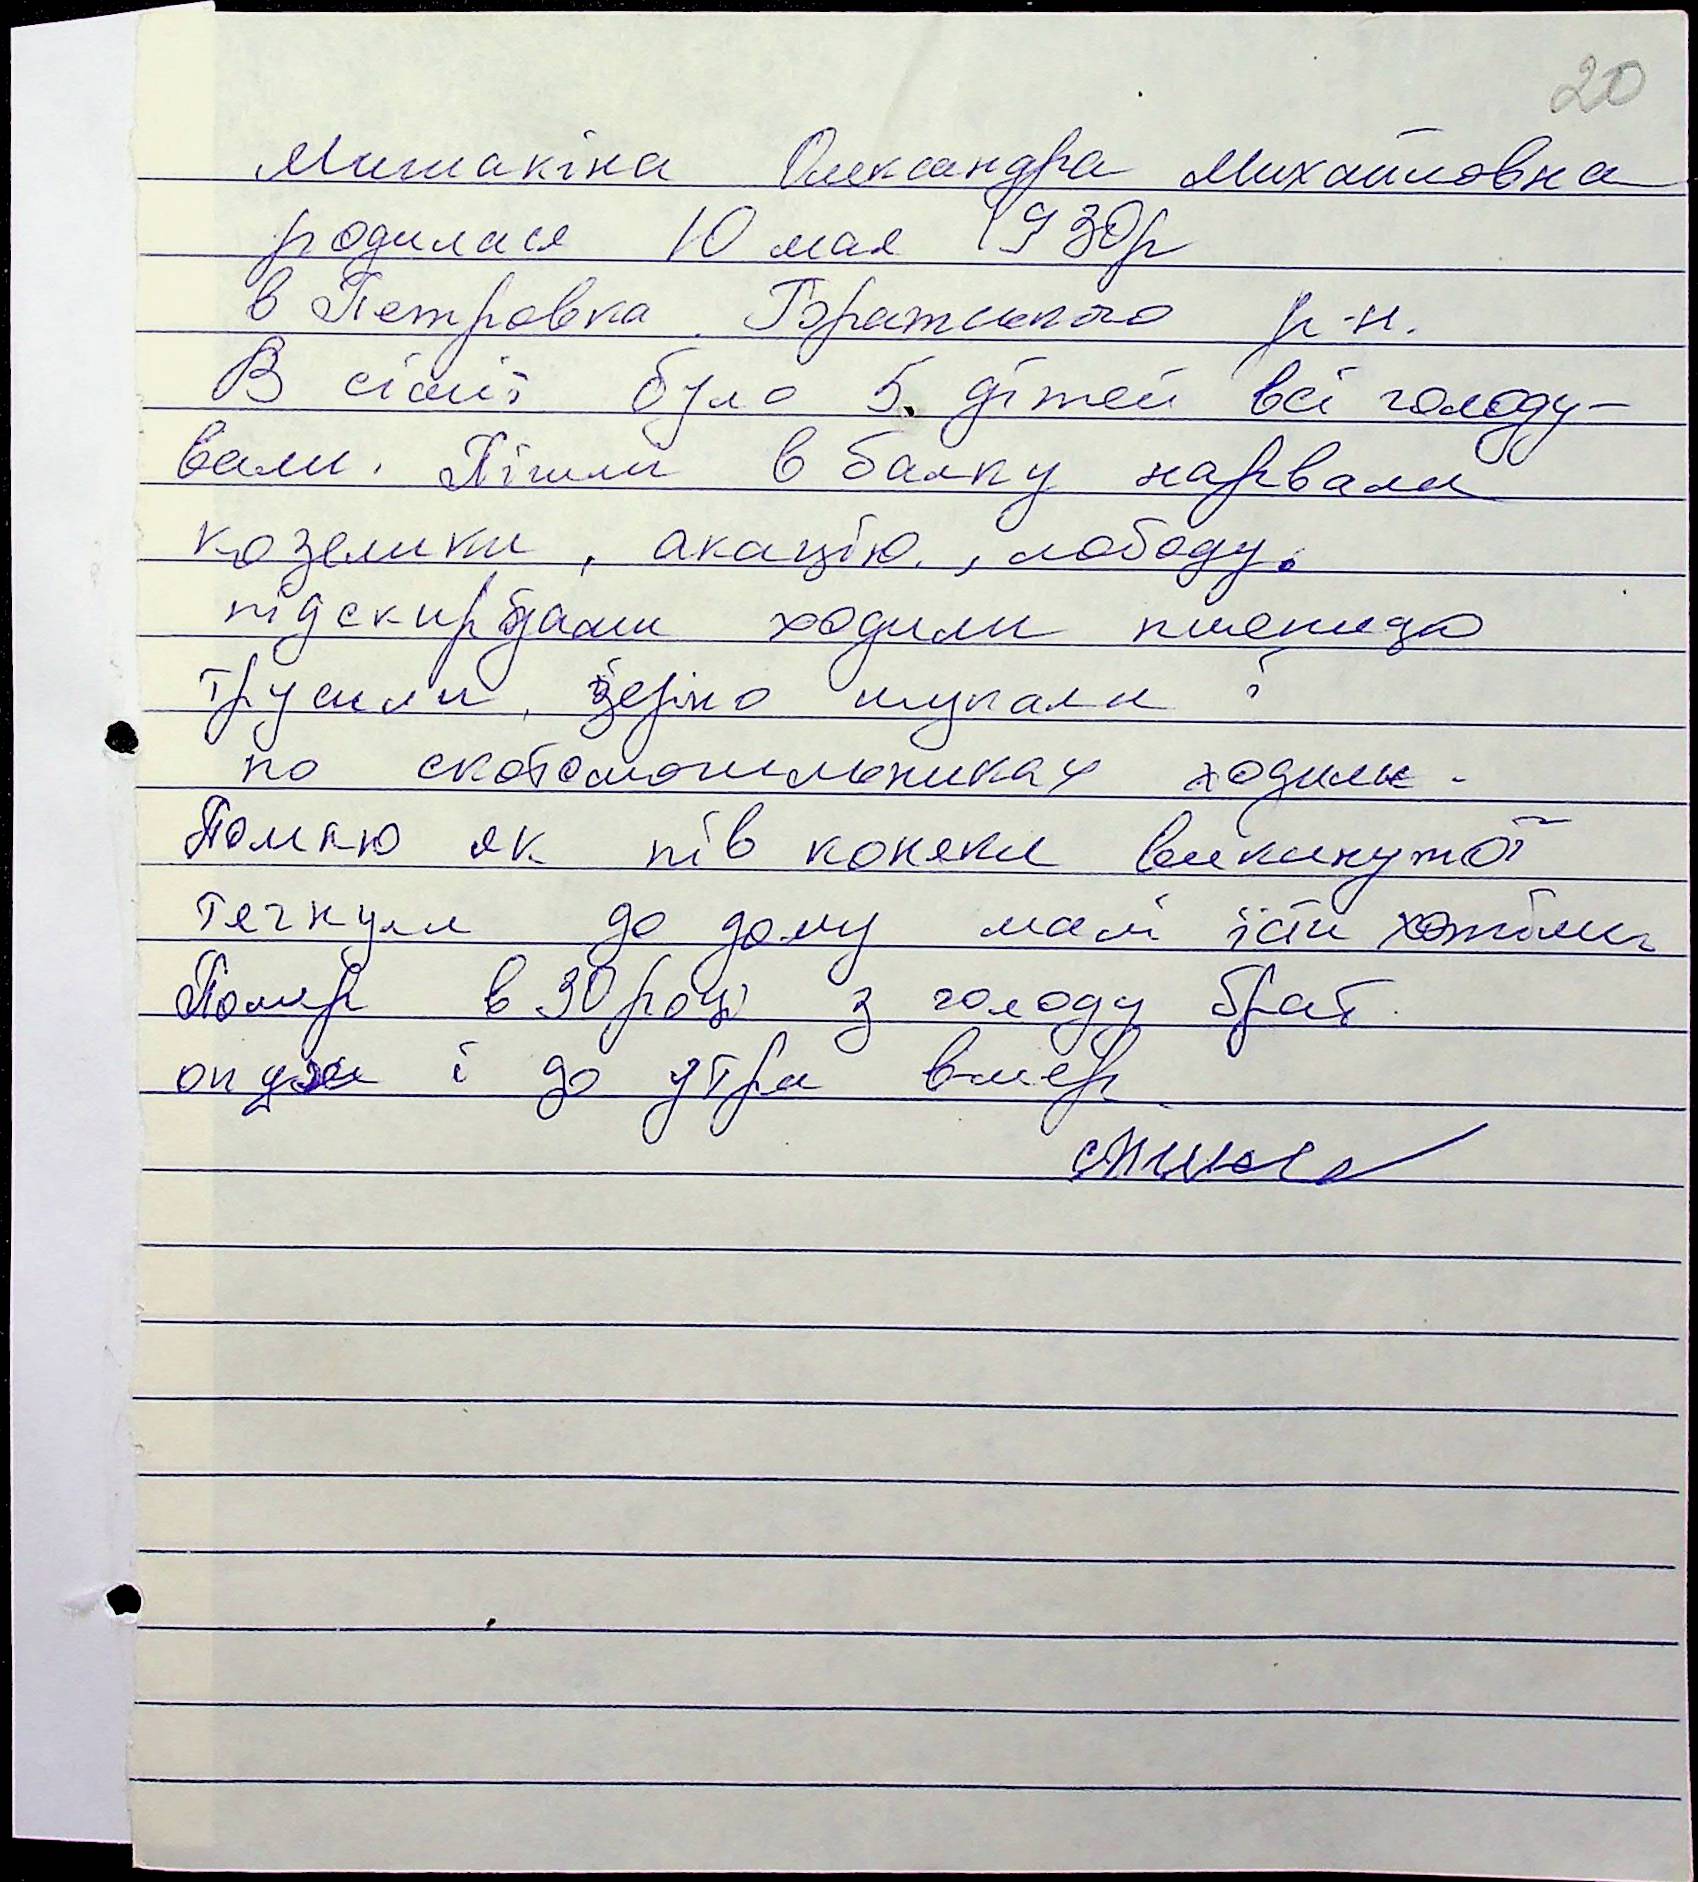 20
Мишакіна Олександра Михайловна
родилася 10 мая 1930р
в Петровка Братського р-н.
В сімї було 5 дітей всі голоду-
вали. Пішли в балку нарвали
козелики, акацію, лободу.
під скирдами ходили пшеницю
трусили, зерно шукали і
по скотомогильниках ходили.
Помню як пів коняки викинутої
тягнули до дому мамі їсти хотіли
Помер в 30 році з голоду брат
опух і до утра вмер